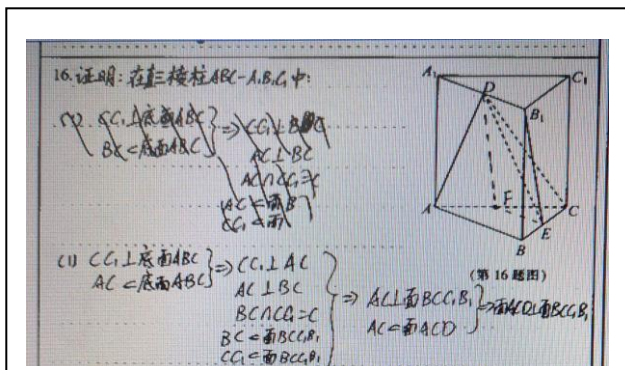 16.证明:在直三棱柱ABC-A₁B₁C₁中:
(1) CC₁⊥底面ABC
BC⊂底面ABC
}⇒CC₁⊥BC
AC⊥BC
AC∩CC₁=C
AC⊂面B
CC₁⊂面
(1) CC₁⊥底面ABC
AC⊂底面ABC
}⇒CC₁⊥AC
AC⊥BC
BC∩CC₁=C
BC⊂面BCC₁B₁
CC₁⊂面BCC₁B₁
}⇒AC⊥面BCC₁B₁
AC⊂面ACD
}⇒面ACD⊥面BCC₁B₁
A₁
C₁
D
B₁
A
F
C
E
B
(第16题图)